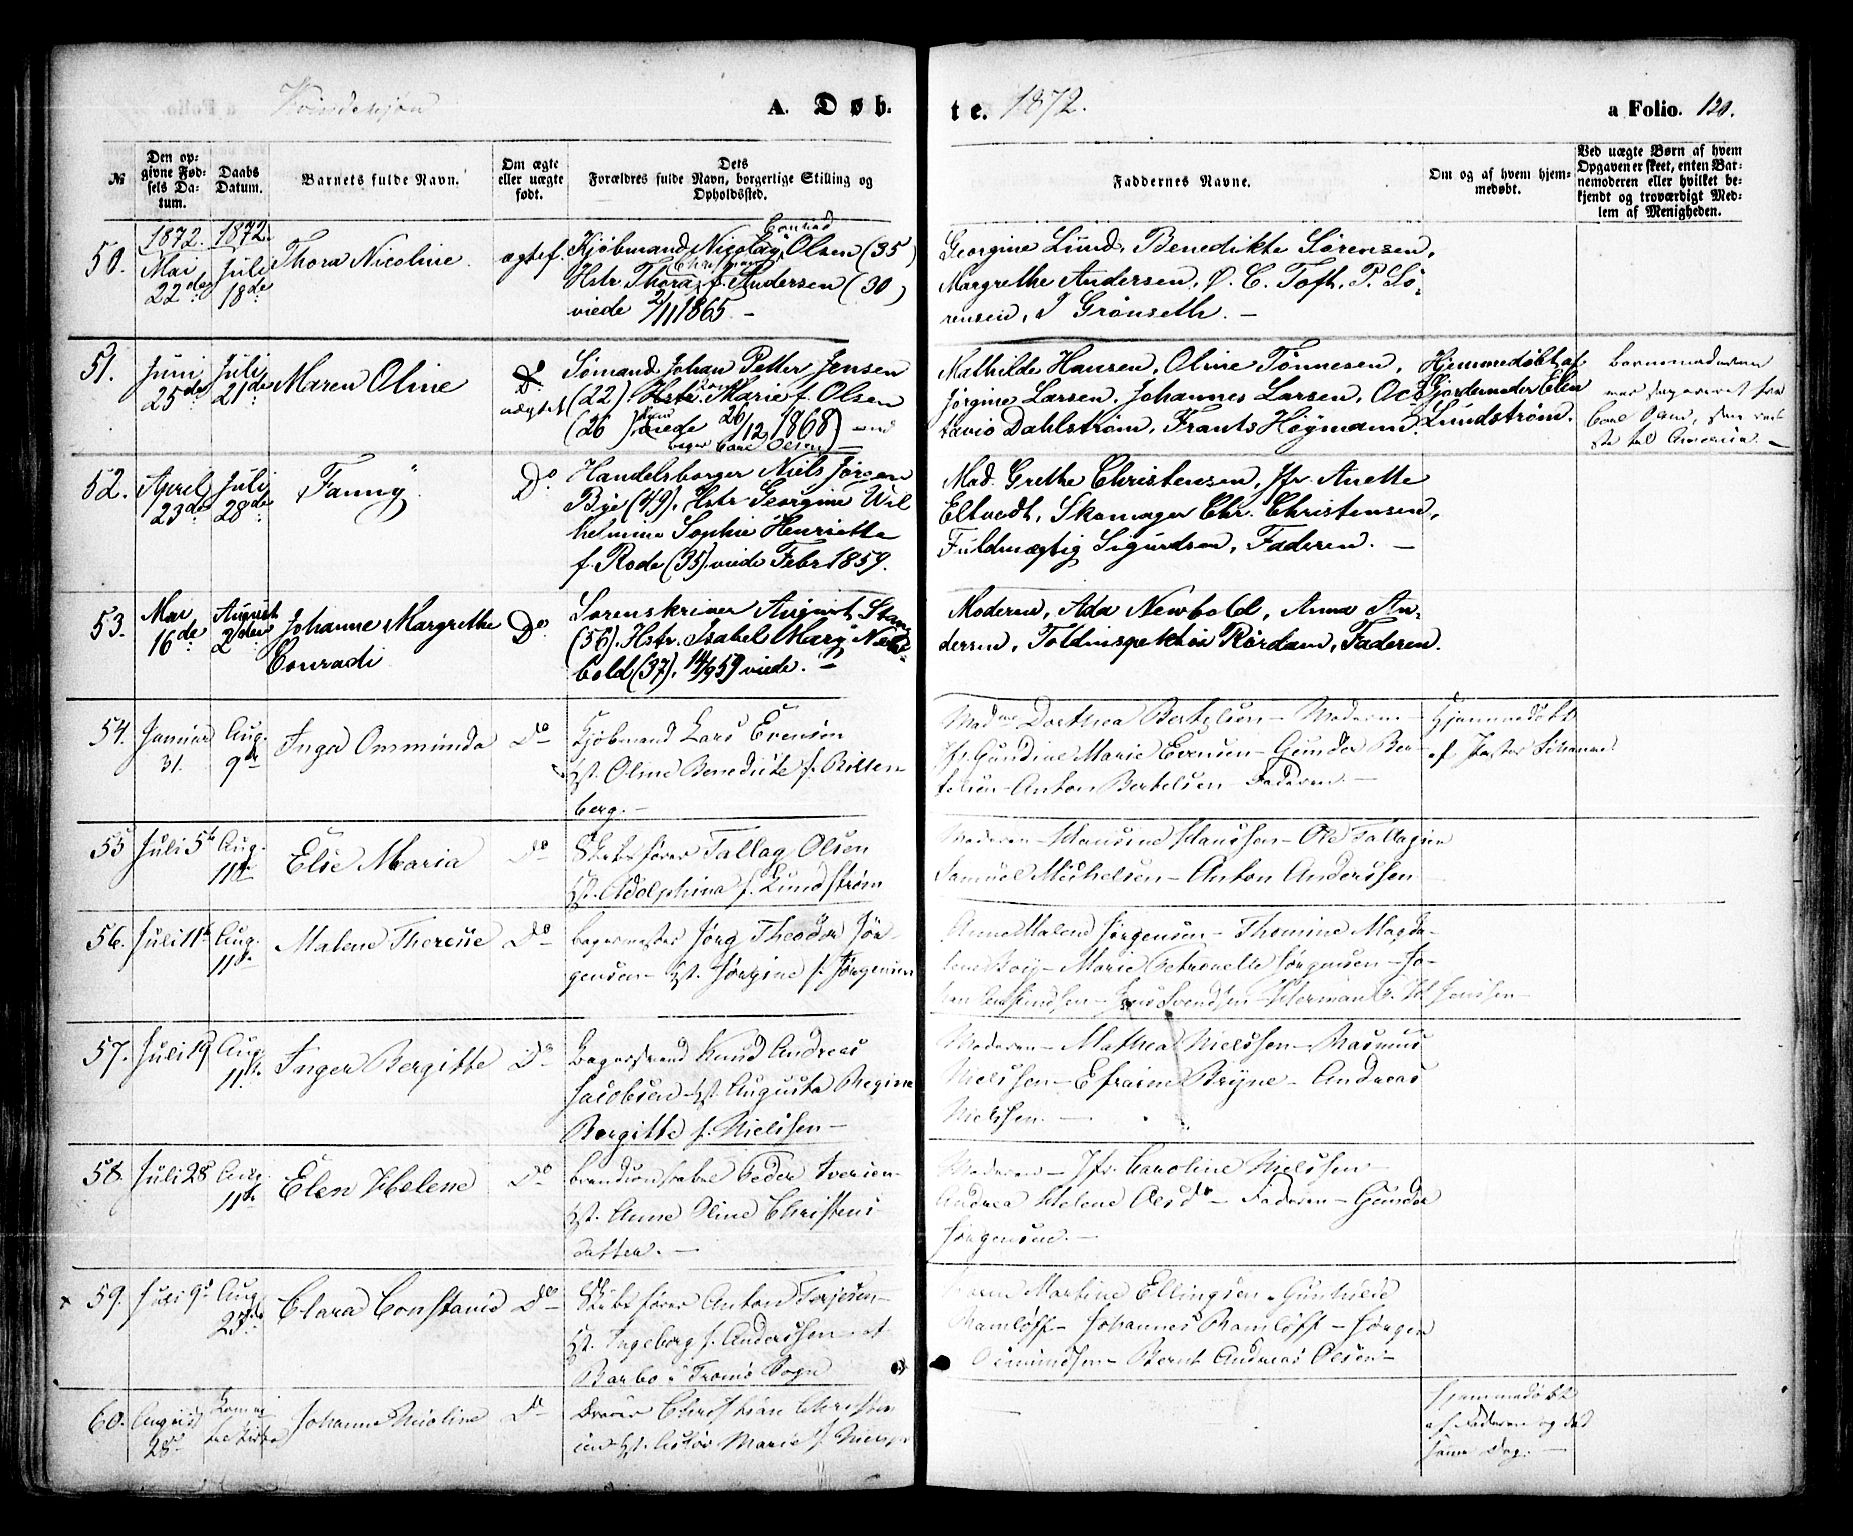 Kvindekjøn
A. Døb- te. 1872. a Folio. 120.
№
Den op-
givne Fød-
sels Da-
tum.
Daabs
Datum.
Barnets fulde Navn.
Om ægte
eller uægte
født.
Dets
Forældres fulde Navn, borgerlige Stilling og
Opholdssted.
Faddernes Navne.
Om og af hvem hjem-
medøbt.
Ved uægte Børn af hvem
Opgaven er skeet, enten Bar-
nemoderen eller hvilket be-
kjendt og troværdigt Med-
lem af Menigheden.
50.
1872.
Mai
22de
1872.
Juli
18de
Thora Nicoline
ægtef.
Conrad
Kjøbmand Nicolay Olsen (35)
Hstr Thora f. Andersen (30)
viede 2/11 1865. —
Georgine Lund, Benedikte Sørensen,
Margrethe Andersen, O. C. Toft, P. Sø-
rensen, J Grønseth. —
51.
Juni
25de
Juli
21de
Maren Oline
Do
uægtef.
Sømand Johan Petter Jensen
(22) Hstr. Marie f. Olsen
(26) viede 26/12 1868) —
Mathilde Hansen, Oline Tønnesen,
Jørgine Larsen, Johannes Larsen, Oc-
tavio Dahlstrøm, Frants Högmann.
Hjemmedøbt af
Gjordemoder Elen
Lundstrøm.
Barnemoderen
var
ste til Amerika. —
52.
April
23de
Juli
28de
Fanny
Do
Handelsborger Niels Jørgen
Bye (49), Hstr Georgine Wil
helmine Sophie Henriette
f. Rode (35) viede Febr 1859.
Mad. Grethe Christensen, Jfr. Anette
Eltvedt, Skomager Chr. Christensen,
Fuldmægtig Sigurdsen, Faderen. —
53.
Mai
16de
August
2den
Johanne Margrethe
Conradi
Do
Sorenskriver August Stang
(56), Hstr. Isabel Mary New-
bold (37), 14/9 59 viede. —
Moderen, Ada Newbold, Anna An-
dersen, Toldinspektør Rørdam, Faderen.
54.
Januar
31.
Aug.
9de
Inga Ommunda
Do
Kjøbmand Lars Evensen
Hst. Oline Benedicte f. Bitten
berg. —
Madme Dorthea Bertelsen — Moderen —
Jfr Gundine Marie Evensen — Gunder Ber-
telsen — Anton Bertelsen — Faderen —
Hjemmedøbt
af Pastor
55
Juli 5te
Aug.
11te
Else Maria
Do
Skibsfører Tallag Olsen
Hst. Adolphina f. Lundstrøm
Moderen — Hansine Hanssen — Ole Tallagsen
Samuel Michelsen — Anton Anderssen
56.
Juli 11te
Aug.
11te
Malene Therese
Do
Bagermester Jörg Theodor Jör-
gensen — Hst. Jørgine f. Jörgensen
Anne Malene Jørgensen — Thomine Magda-
lene — Marie Petronelle Jørgensen — Jo-
— Jens Svendsen — Herman
57.
Juli 19
Aug.
11te
Inger Bergitte
Do
Knud Andreas
Jacobsen — Hst. Augusta Regine
Bergitte f. Nielssen —
Moderen — Mathea Nielssen — Rasmus
Nielssen — Efraim Bryne — Andreas
Nielssen. —
58.
Juli 28
Aug.
11te
Elen Helene
Do
Brandkonstabel Peder Iversen
Hst. Anne Oline Christens
datter. —
Moderen — Jfr. Caroline Nielssen —
Andrea Helene Olsdr — Faderen — Gunder
Jørgensen. —
x 59.
Juli 9de
Aug.
25de
Clara Constanse
Do
Skibsfører Anton Terjesen —
Hst. Ingeborg f. Anderssen — af
Barbo i Tromø Sogn
Karen Martine Ellingsen — Gunhilde
Ramløff — Johannes Ramløff — Jørgen
Osmundsen — Bernt Andreas Olsen —
60.
August
28de
Johanne Nicoline
Do
Christian Christen
sen Hst. Marie f. Niels
Hjemmedøbt
af Faderen og det
samme Dag. —